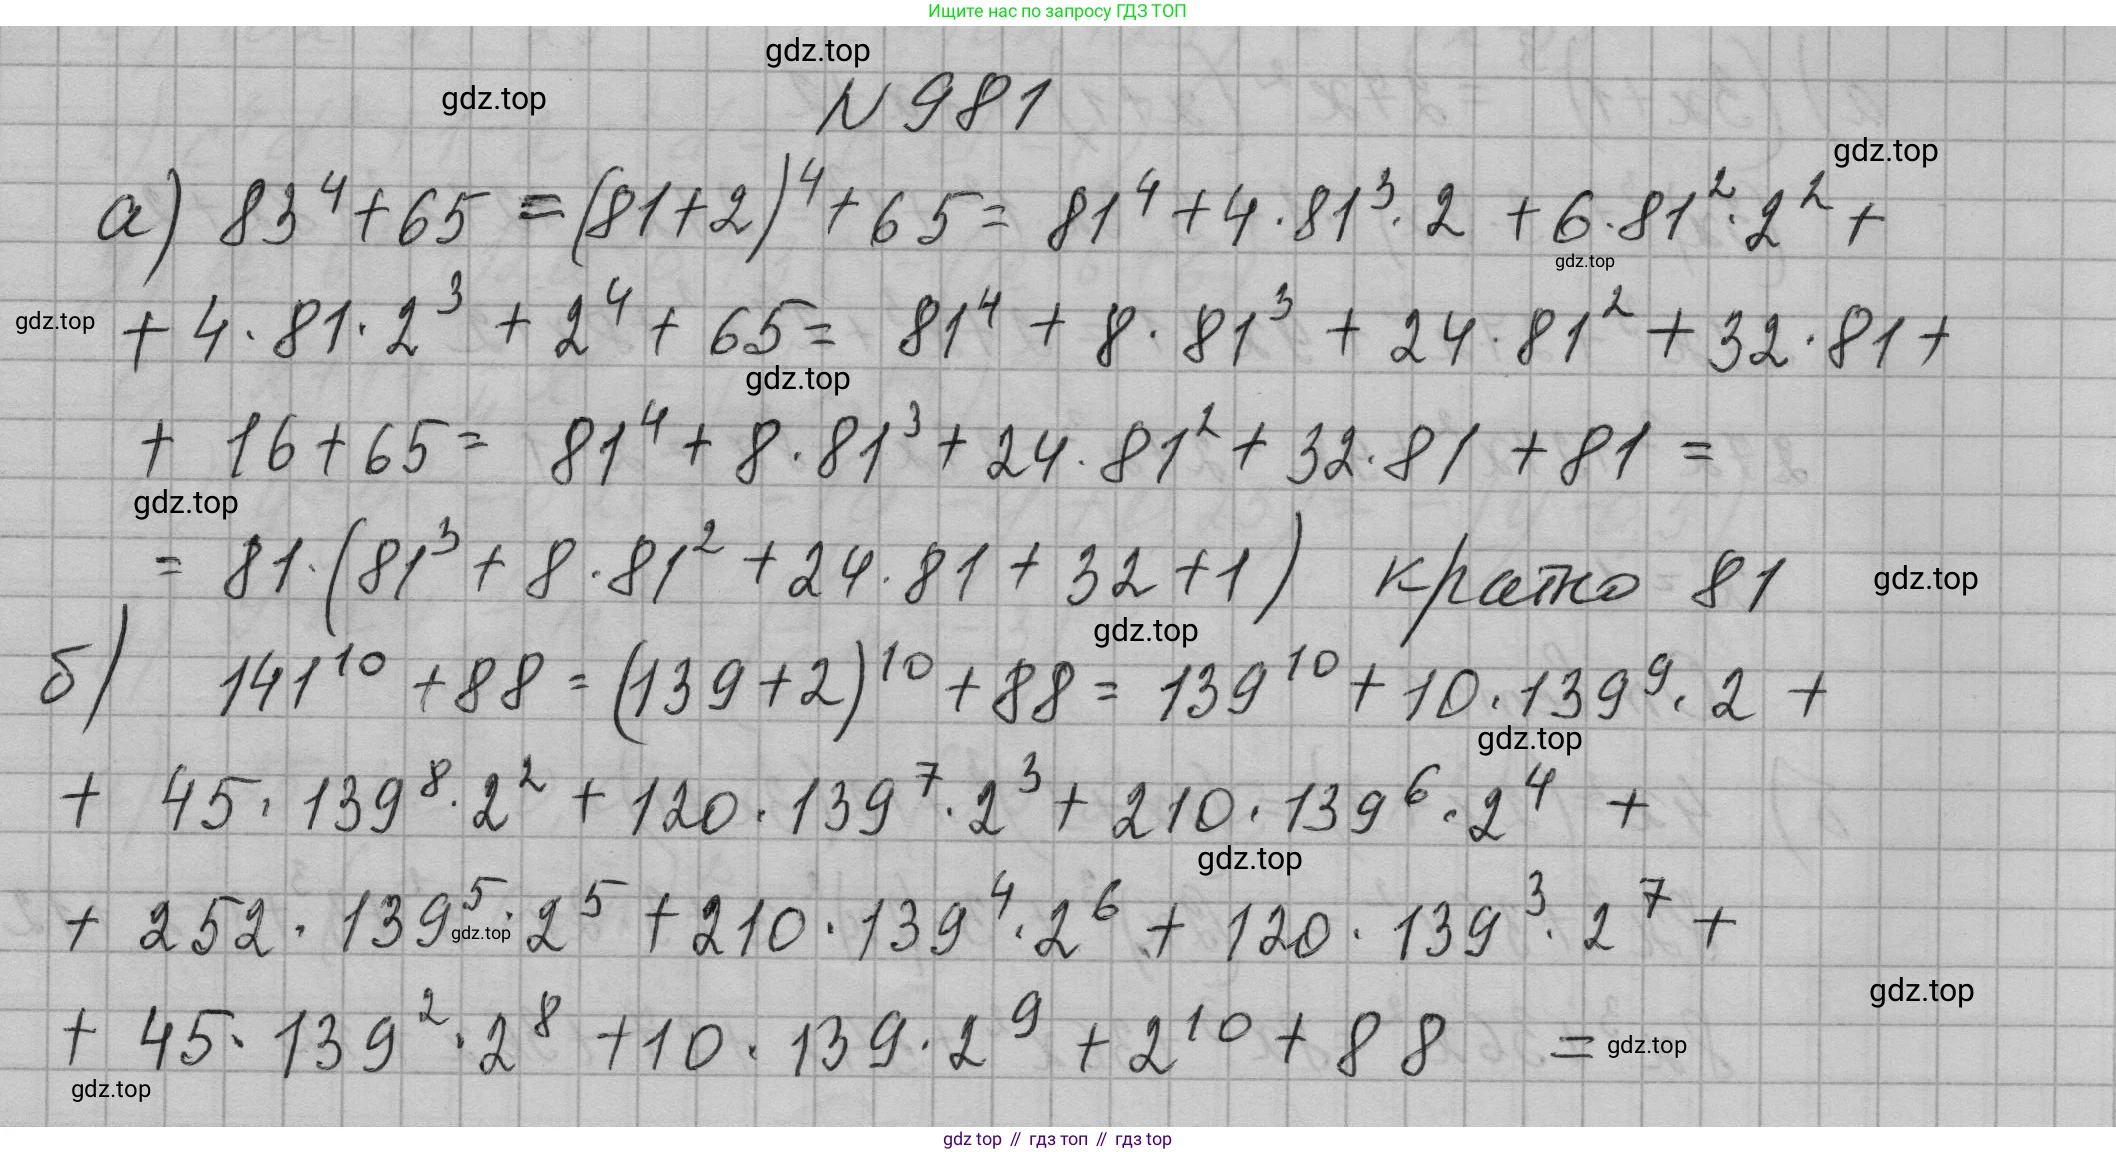 Ищите нас по запросу ГДЗ ТОП
gdz.top
gdz.top
N 981
gdz.top
а) 83⁴ + 65 = (81+2)⁴ + 65 = 81⁴ + 4·81³·2 + 6·81²·2² +
gdz.top
gdz.top
+ 4·81·2³ + 2⁴ + 65 = 81⁴ + 8·81³ + 24·81² + 32·81 +
gdz.top
+ 16 + 65 = 81⁴ + 8·81³ + 24·81² + 32·81 + 81 =
gdz.top
= 81·(81³ + 8·81² + 24·81 + 32 + 1) кратно 81
gdz.top
gdz.top
б) 141¹⁰ + 88 = (139+2)¹⁰ + 88 = 139¹⁰ + 10·139⁹·2 +
gdz.top
+ 45·139⁸·2² + 120·139⁷·2³ + 210·139⁶·2⁴ +
gdz.top
+ 252·139⁵·2⁵ + 210·139⁴·2⁶ + 120·139³·2⁷ +
gdz.top
gdz.top
+ 45·139²·2⁸ + 10·139·2⁹ + 2¹⁰ + 88 =
gdz.top
gdz.top
gdz top // гдз топ // гдз top